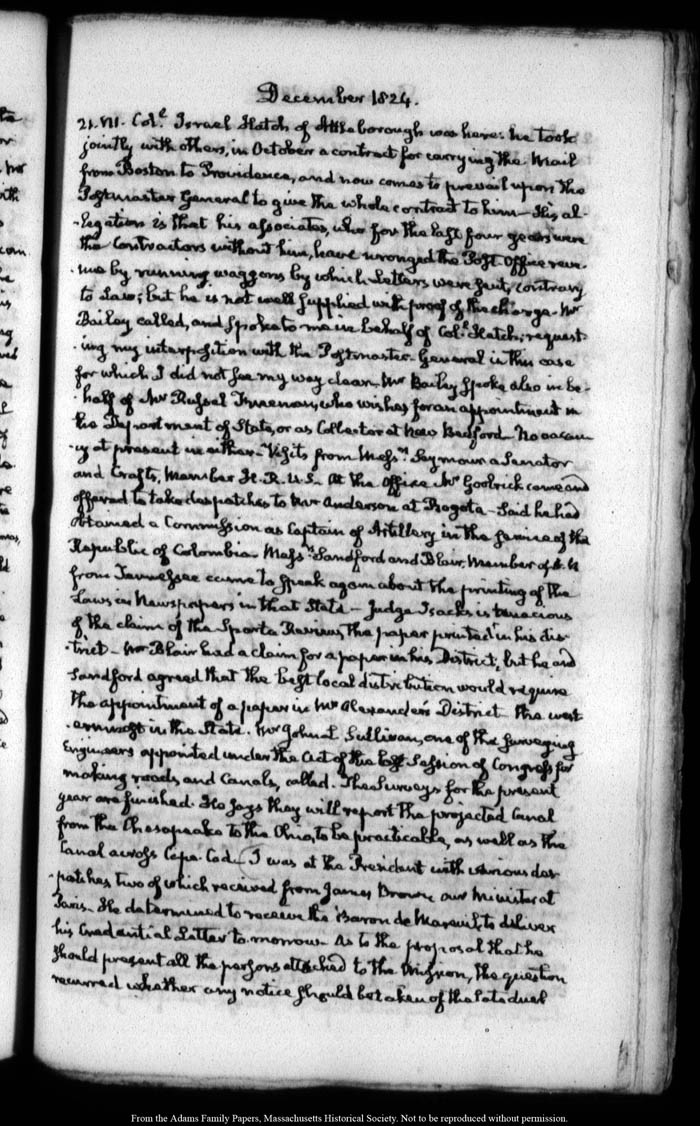 December 1824.
21. VII. Col.^l Israel Hatch of Attleborough was here: he took
jointly with others, in October a contract for carrying the Mail
from Boston to Providence, and now comes to prevail upon the
Postmaster General to give the whole contract to him— His al-
-legation is that his associates, who for the last four years were
the Contractors without him, have wronged the Post Office reve-
-nue by running waggons by which Letters were sent, contrary
to Law; but he is not well supplied with proof of the charge. Mr
Bailey called, and spoke to me in behalf of Col.^l Hatch; request-
-ing my interposition with the Postmaster General in this case
for which I did not see my way clear. Mr Bailey spoke also in be-
-half of Mr Russel Freeman, who wishes for an appointment in
the Department of State, or as Collector at New Bedford. No vacan-
-cy at present in either— Visits from Mess.^rs Seymour a Senator
and Crafts, Member H. R. U. S. At the Office Mr Goolrick came and
offered to take despatches to Mr Anderson at Bogota— Said he had
obtained a Commission as Captain of Artillery in the service of the
Republic of Colombia. Mess.^rs Sandford and Blair, Member of H. R
from Tennessee came to speak again about the printing of the
Laws in Newspapers in that State— Judge Isacks is tenacious
of the claim of the Sparta Review, the paper printed in his dis-
-trict— Mr Blair had a claim for a paper in his District, but he and
Sandford agreed that the best local distribution would require
the appointment of a paper in Mr Alexander's District— the west-
-ernmost in the State. Mr John L Sullivan, one of the surveying
Engineers appointed under the Act of the last Session of Congress for
making roads and Canals, called. The Surveys for the present
year are finished. He says they will report the projected Canal
from the Chesapeake to the Ohio, to be practicable, as well as the
Canal across Cape Cod— I was at the President with various des-
-patches two of which received from James Brown our Minister at
Paris— He determined to receive the Baron de Mareuil, to deliver
his Credential Letter to-morrow— As to the proposal that he
should present all the persons attached to the Mission, the question
recurred whether any notice should be taken of the late duel
From the Adams Family Papers, Massachusetts Historical Society. Not to be reproduced without permission.